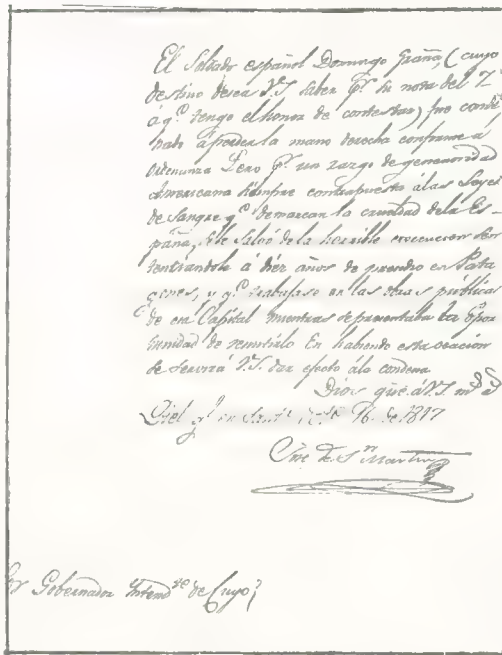 El Soldado español Domingo Graña, (cuyo
destino desea V.S saber pr. su nota del 7
á qe. tengo el honor de contestar) fue conde
nado á perder la mano derecha conforme á
ordenanza Pero pr. un rasgo de generosidad
Americana siempre contrapuesto á las Leyes
de Sangre qe. demarcan la crueldad de la Es-
paña, se le salvó de la horrible execucion sen
tenciandole á diez años de precidio en Pata
gones, y qe. trabajase en las obras públicas
de esa Capital mientras se presentaba la opor
tunidad de remitirlo En habiendo esta ocasión
se servirá V.S. dar efecto á la condena
Dios güe. á V.S ms. as.
Qtel gl. en Sant. 16. de 1817
Jose de Sn. Martin
Sr Gobernador Intende. de Cuyo